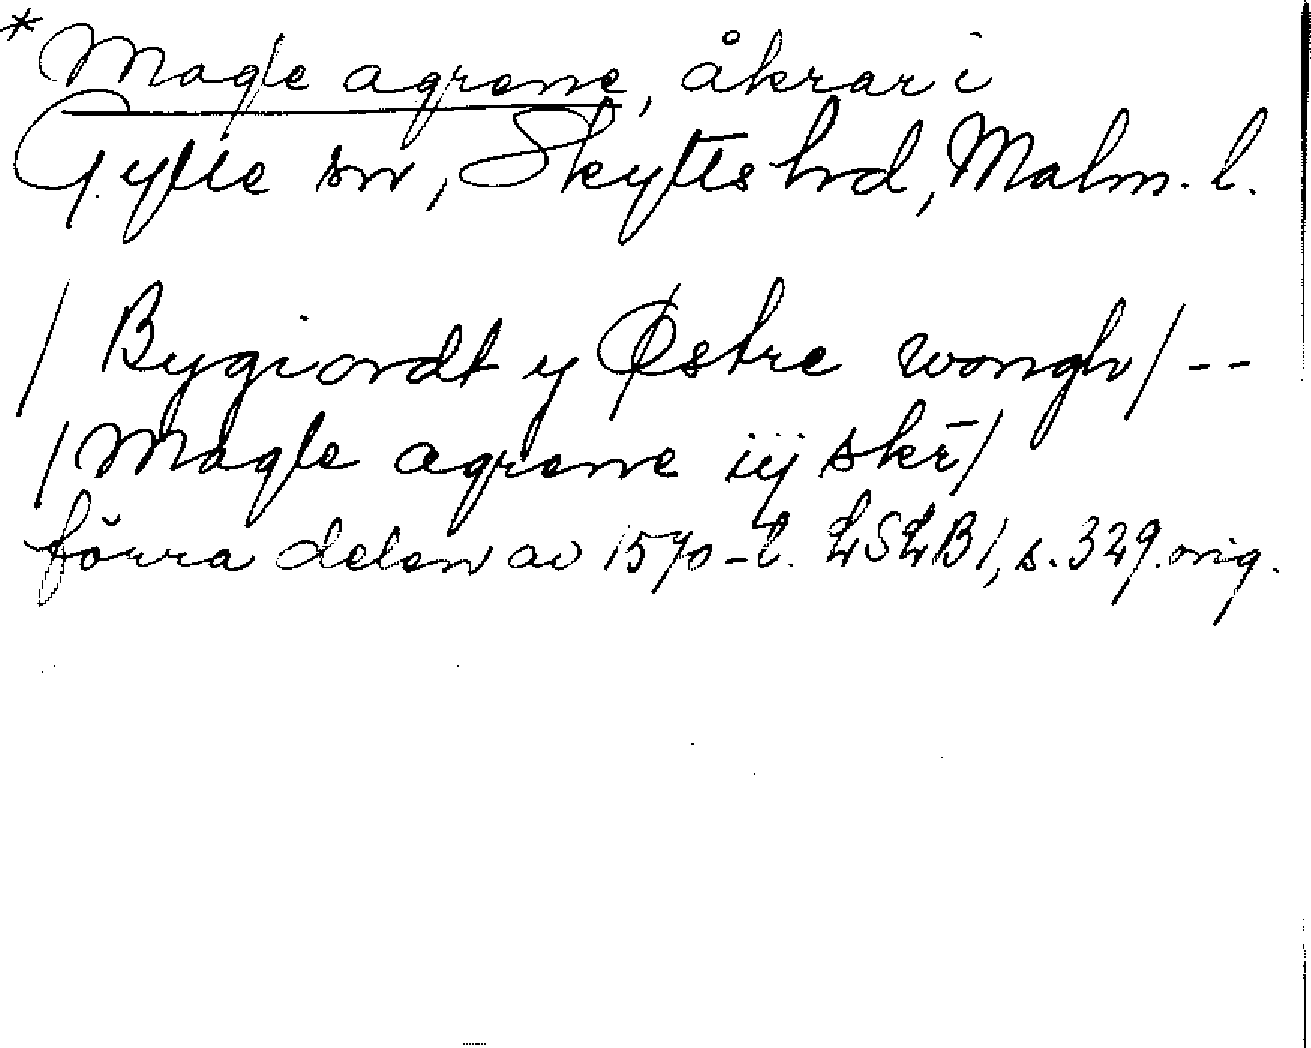 * Magle agrene, åkrar i
Gylle sn, Skytts hd, Malm. l.
/ Bygiordt y Østre wongh / --
/ Magle agrene iij skr̄ /
förra delen av 1570-t. LSLB 1, s. 329. orig.